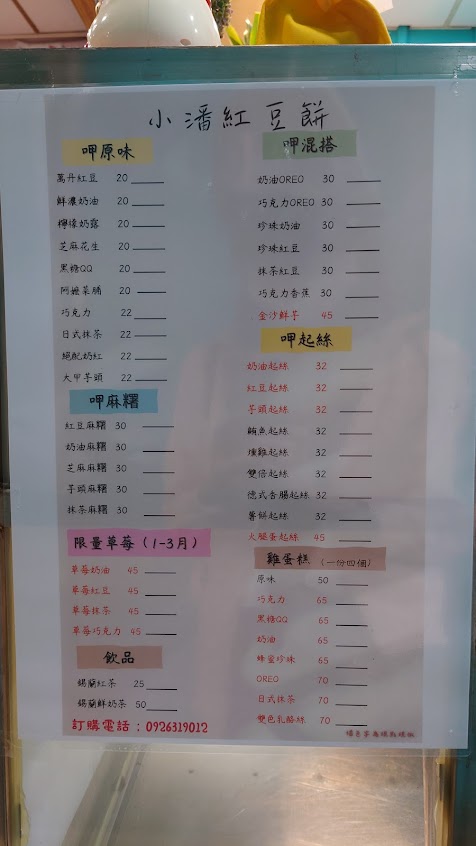 小潘紅豆餅
呷原味
萬丹紅豆 20
鮮濃奶油 20
檸檬奶露 20
芝麻花生 20
黑糖QQ 20
阿嬤菜脯 20
巧克力 22
日式抹茶 22
絕配奶紅 22
大甲芋頭 22
呷麻糬
紅豆麻糬 30
奶油麻糬 30
芝麻麻糬 30
芋頭麻糬 30
抹茶麻糬 30
限量草莓(1-3月)
草莓奶油 45
草莓紅豆 45
草莓抹茶 45
草莓巧克力 45
飲品
錫蘭紅茶 25
錫蘭鮮奶茶 50
訂購電話：0926319012
呷混搭
奶油OREO 30
巧克力OREO 30
珍珠奶油 30
珍珠紅豆 30
抹茶紅豆 30
巧克力香蕉 30
金沙鮮芋 45
呷起絲
奶油起絲 32
紅豆起絲 32
芋頭起絲 32
鮪魚起絲 32
燻雞起絲 32
雙倍起絲 32
德式香腸起絲 32
薯餅起絲 32
火腿蛋起絲 45
雞蛋糕 (一份四個)
原味 50
巧克力 65
黑糖QQ 65
奶油 65
蜂蜜珍珠 65
OREO 70
日式抹茶 70
雙色乳酪絲 70